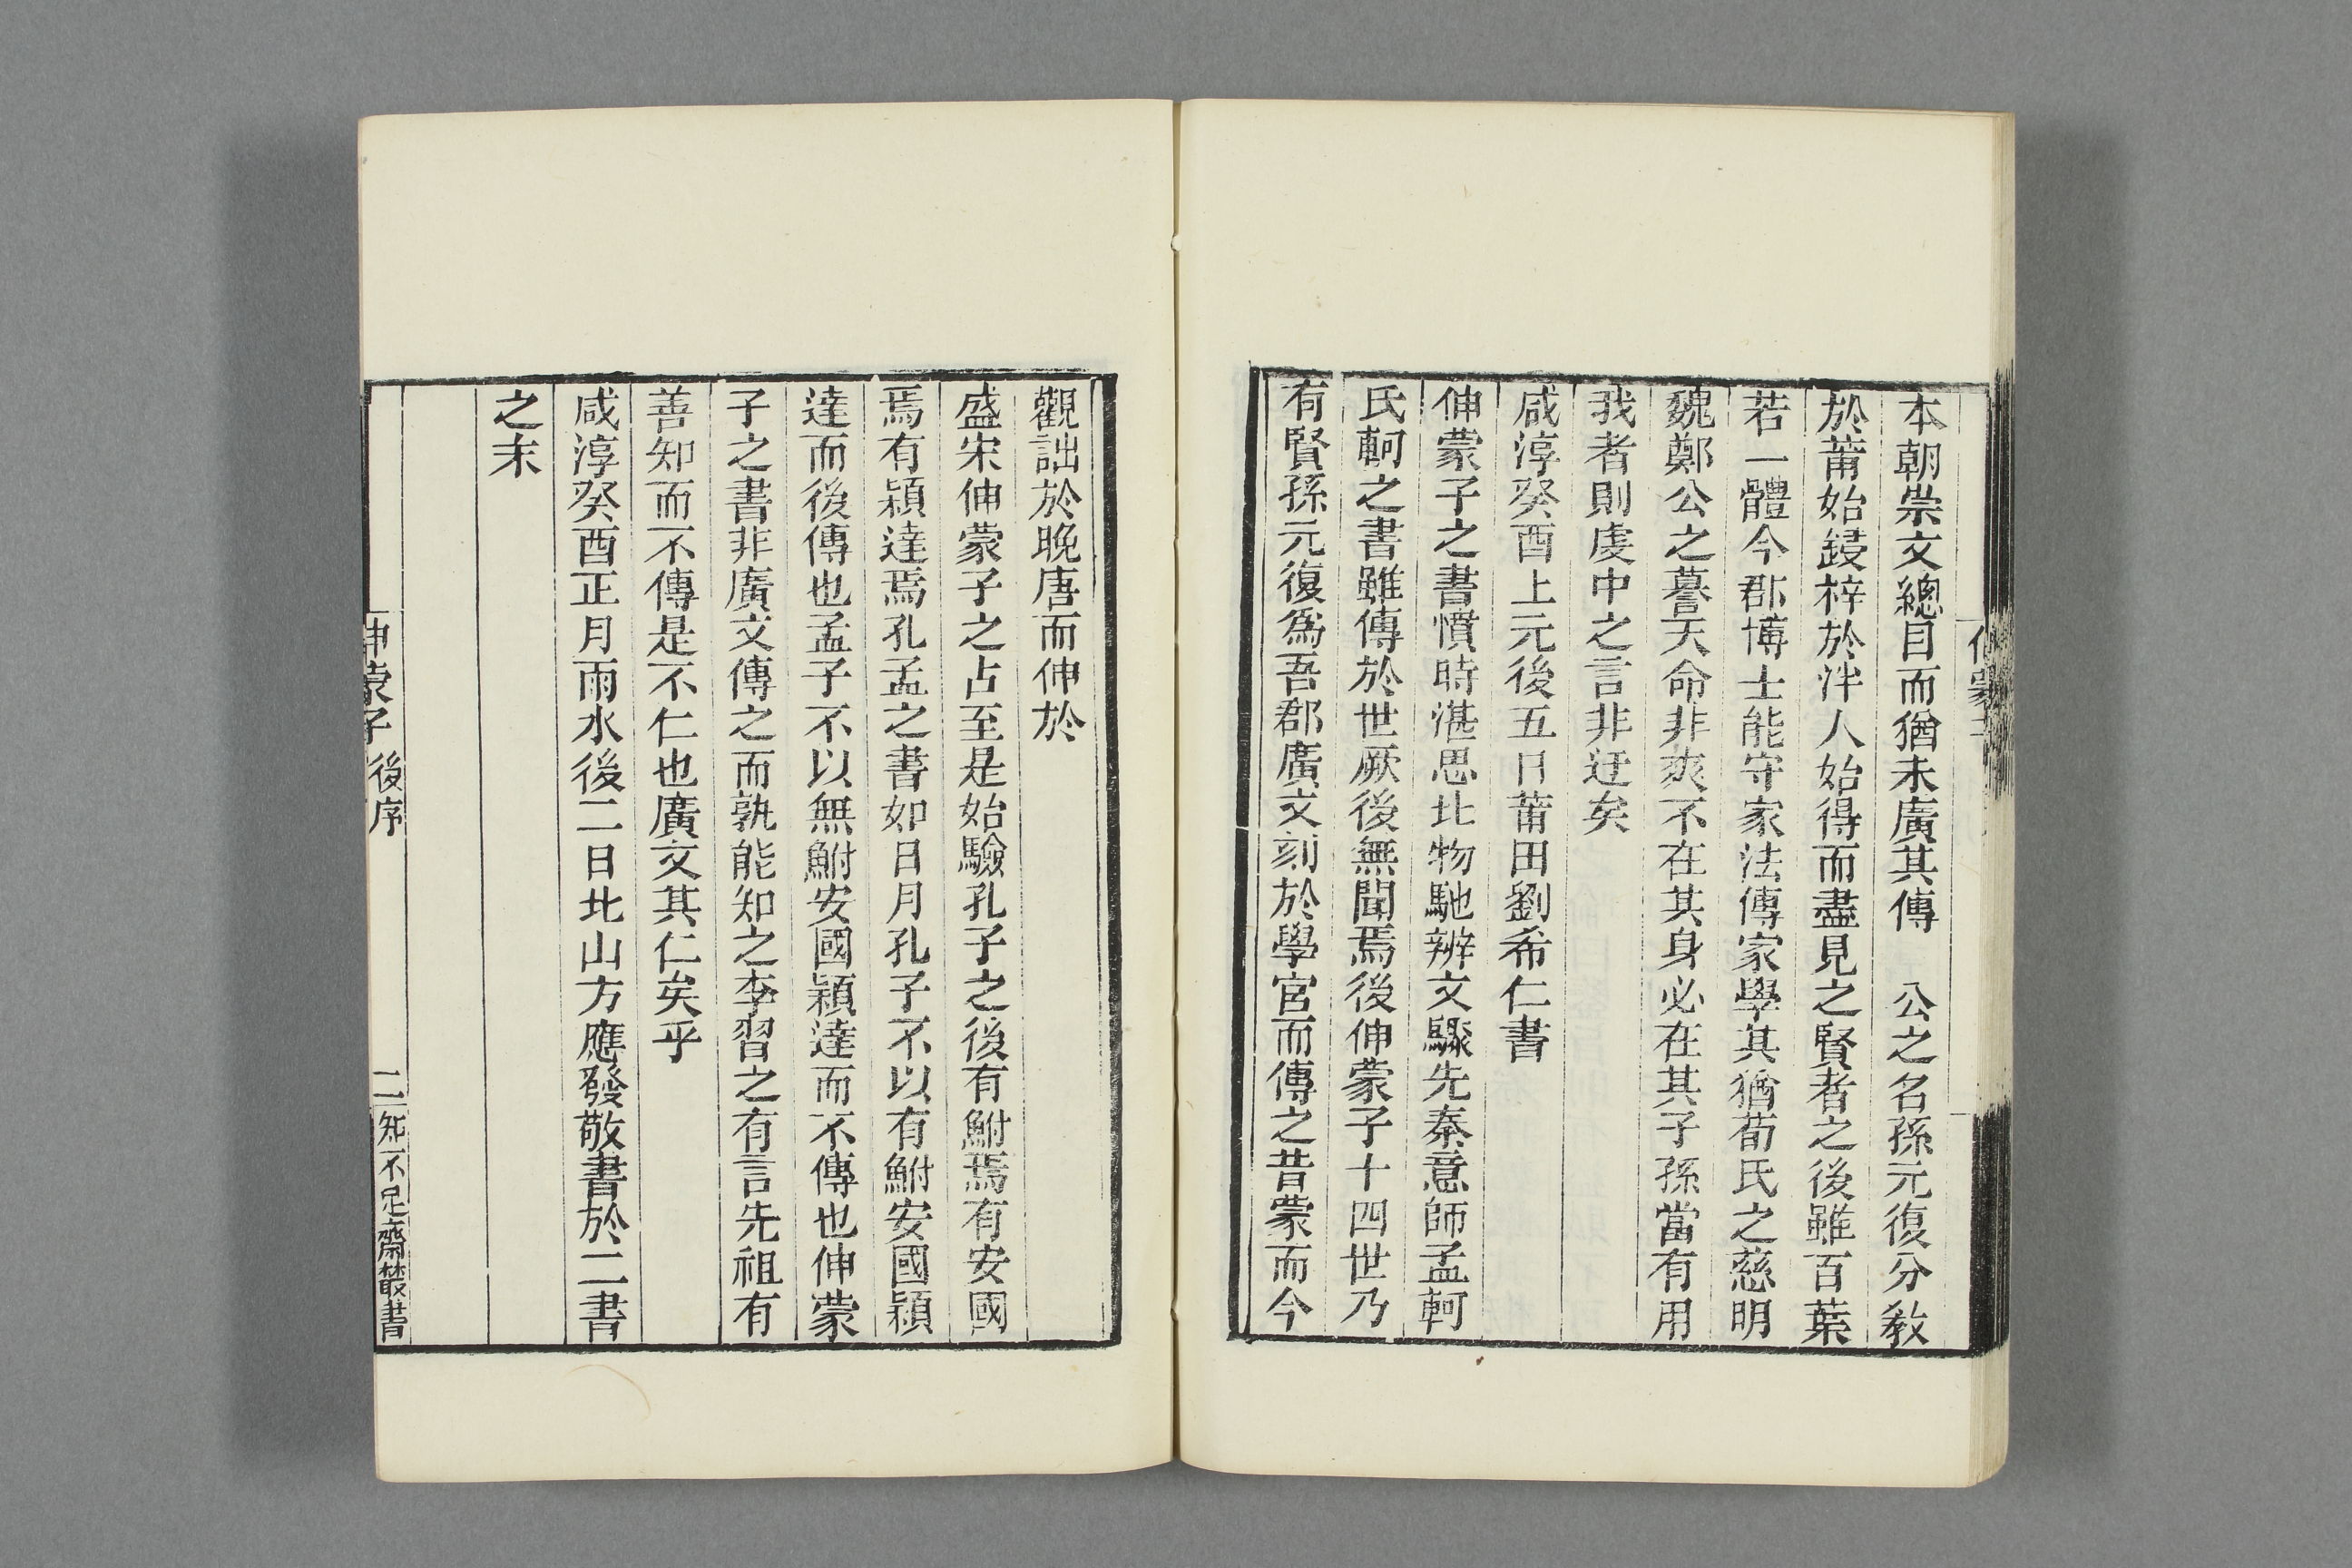 本朝崇文總目而猶未廣其傳　公之名孫元復分敎
於莆始鋟梓於泮人始得而盡見之賢者之後雖百葉
若一體今郡博士能守家法傳家學其猶荀氏之慈明
魏鄭公之謩天命非爽不在其身必在其子孫當有用
我者則虔中之言非迂矣
咸淳癸酉上元後五日莆田劉希仁書
伸蒙子之書憤時湛思比物馳辨文驟先秦意師孟軻
氏軻之書雖傳於世厥後無聞焉後伸蒙子十四世乃
有賢孫元復爲吾郡廣文刻於學宮而傳之昔蒙而今
觀詘於晚唐而伸於
盛宋伸蒙子之占至是始驗孔子之後有鮒焉有安國
焉有穎達焉孔孟之書如日月孔子不以有鮒安國穎
達而後傳也孟子不以無鮒安國穎達而不傳也伸蒙
子之書非廣文傳之而孰能知之李習之有言先祖有
善知而不傳是不仁也廣文其仁矣乎
咸淳癸酉正月雨水後二日北山方應發敬書於二書
之末
伸蒙子 後序
二
知不足齋叢書